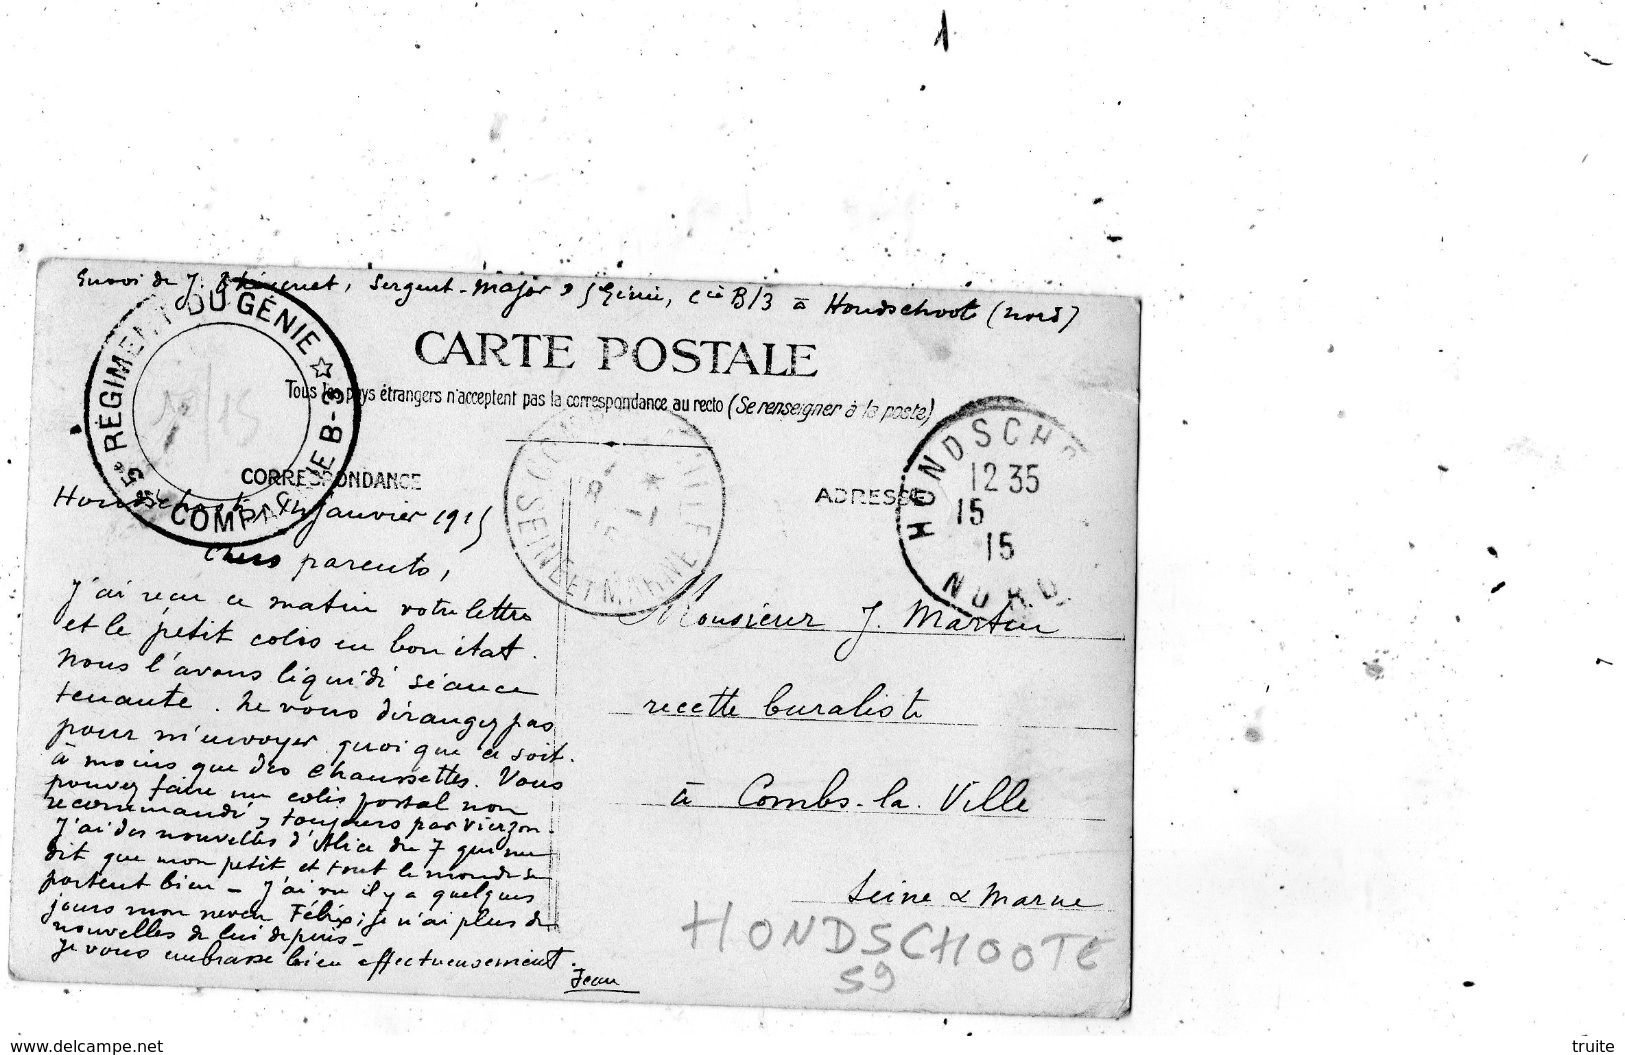 1
Envoi de J. Sergent-Major 5 Génie, Cie B/3 à Hondschoote (Nord)
CARTE POSTALE
Tous les pays étrangers n'acceptent pas la correspondance au recto (Se renseigner à la poste)
5e RÉGIMENT DU GÉNIE ☆
COMPAGNIE B-3
15
CORRESPONDANCE
ADRESSE
HONDSCHO
12 35
15
15
NORD
SEINE ET MARNE
Hondschoote, janvier 1915
Chers parents,
J'ai reçu ce matin votre lettre
et le petit colis en bon état.
Nous l'avons liquidé séance
tenante. Ne vous dérangez pas
pour m'envoyer quoique ce soit.
à moins que des chaussettes. Vous
pouvez faire un colis postal non
recommandé, toujours par Vierzon.
J'ai des nouvelles d'Alice du 7 qui me
dit que mon petit et tout le monde se
portent bien – J'ai vu il y a quelques
jours mon neveu Félix; je n'ai plus de
nouvelles de lui depuis –
Je vous embrasse bien affectueusement.
Jean
Monsieur J. Martin
recette buraliste
à Combs-la-Ville
Seine & Marne
HONDSCHOOTE
59
www.delcampe.net
truite